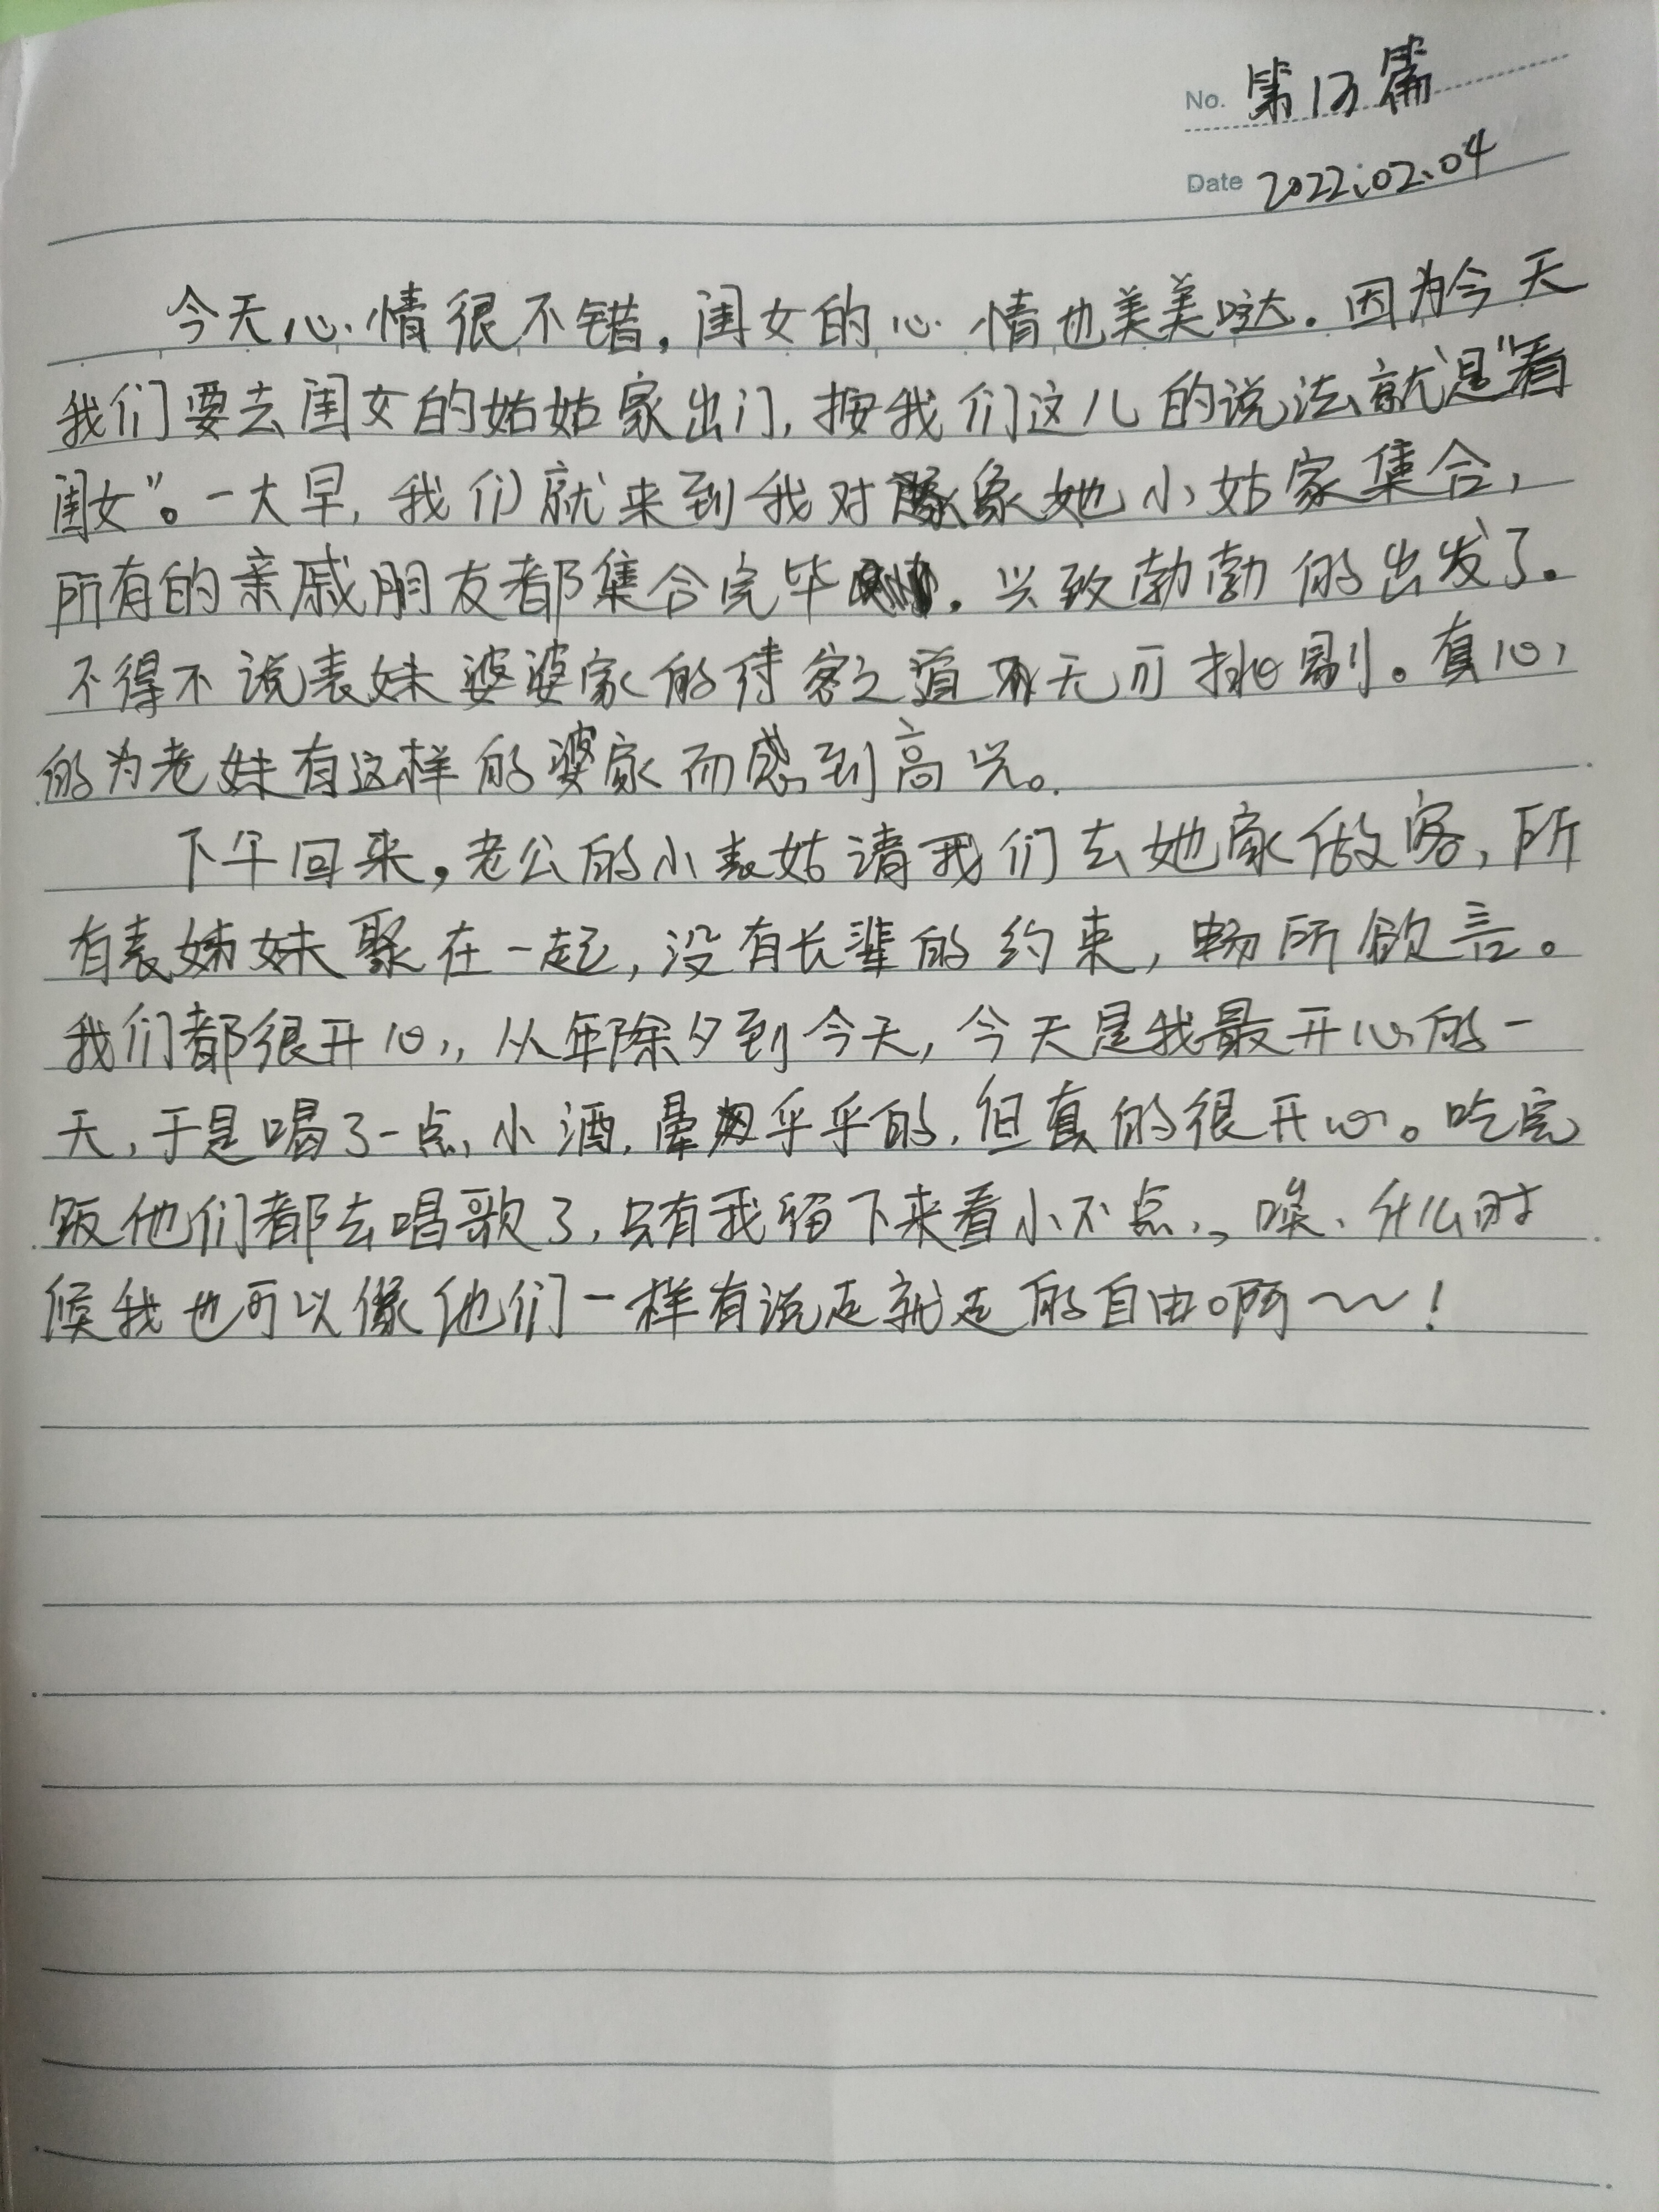 No. 第13篇
Date 2022.02.04
今天心情很不错，闺女的心情也美美哒。因为今天
我们要去闺女的姑姑家出门，按我们这儿的说法就是"看
闺女"。一大早，我们就来到我对象她小姑家集合，
所有的亲戚朋友都集合完毕，兴致勃勃的出发了。
不得不说表妹婆婆家的待客之道无可挑剔。真心
的为老妹有这样的婆家而感到高兴。
下午回来，老公的小表姑请我们去她家做客，所
有表姊妹聚在一起，没有长辈的约束，畅所欲言。
我们都很开心，从年除夕到今天，今天是我最开心的一
天，于是喝了一点小酒，晕乎乎的，但真的很开心。吃完
饭他们都去唱歌了，只有我留下来看小不点，唉、什么时
候我也可以像他们一样有说走就走的自由啊～～！